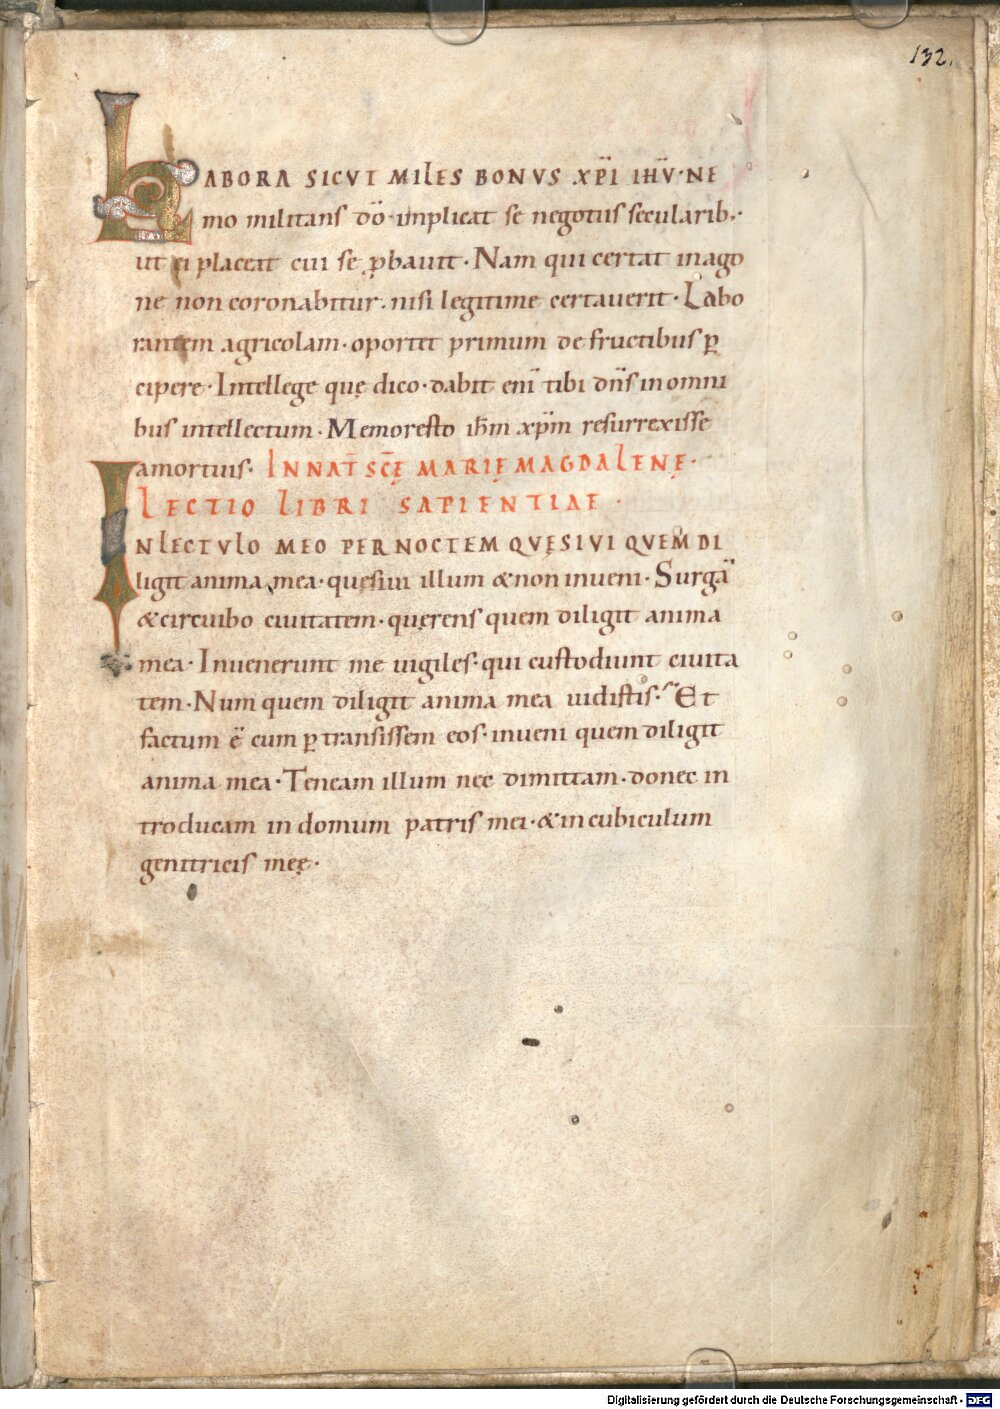 132.
LABORA SICVT MILES BONVS XP̄I IHV̄·NE
mo militans dō·implicat se negotiis secularib·.
ut ei placeat cui se ꝓbauit·Nam qui certat inago
ne non coronabitur·nisi legitime certauerit·Labo
rantem agricolam·oportet primum de fructibus p̱
cipere·Intellege quę dico·dabit enī tibi dn̄s inomni
bus intellectum·Memoresto ih̄m xp̄m resurrexisse
amortuis· IN NAT̄ SC̄Ę MARIĘ MAGDALENĘ·
LECTIO LIBRI SAPIENTIAE·
INLECTVLO MEO PER NOCTEM QVĘSIVI QVEM DI
ligit anima mea·quęsiui illum &non inueni·Surgā
&circuibo ciuitatem·quęrens quem diligit anima
mea·Inuenerunt me uigiles·qui custodiunt ciuita
tem·Num quem diligit anima mea uidistis? Et
factum ē cum p̱transissem eos·inueni quem diligit
anima mea·Teneam illum nec dimittam·donec in
troducam in domum patris mei·&in cubiculum
genitricis meę·
Digitalisierung gefördert durch die Deutsche Forschungsgemeinschaft - DFG